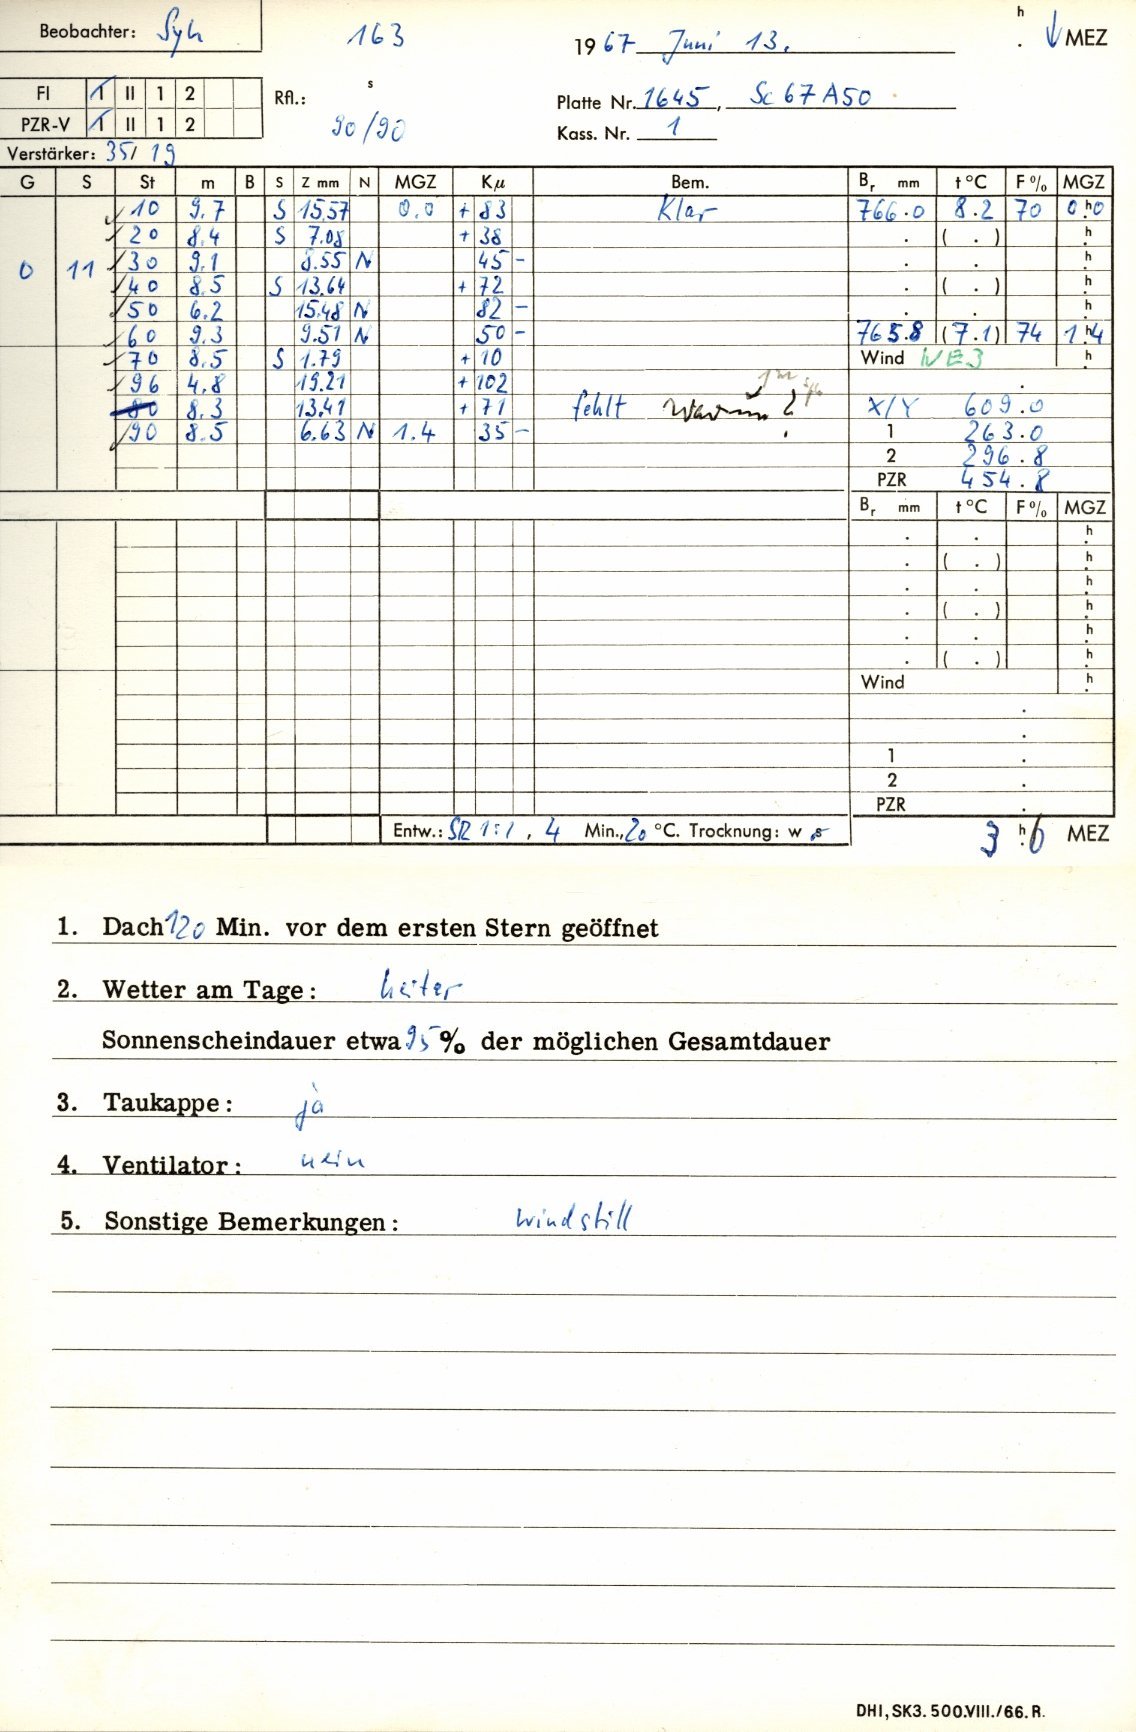 Beobachter: Syh 163 1967 Juni 13. h . MEZ
FI I II 1 2 Rfl.: s Platte Nr. 1645, Sc 67 A50
PZR-V I II 1 2 90/90 Kass. Nr. 1
Verstärker: 35/19
G S St m B S Z mm N MGZ Kμ Bem. Br mm t °C F % MGZ
10 9.7 S 15.57 0.0 + 83 Klar 766.0 8.2 70 0h.0
20 8.4 S 7.08 + 38 . ( . ) h
0 11 30 9.1 8.55 N 45 - . . h
40 8.5 S 13.64 + 72 . ( . ) h
50 6.2 15.48 N 82 - . . h
60 9.3 9.51 N 50 - 765.8 (7.1) 74 1h.4
70 8.5 S 1.79 + 10 Wind NE3 h
96 4.8 19.21 + 102 .
80 8.3 13.41 + 71 fehlt Warum? X/Y 609.0
90 8.5 6.63 N 1.4 35 - 1 263.0
2 296.8
PZR 454.8
Br mm t °C F % MGZ
. . h
. ( . ) h
. . h
. ( . ) h
. . h
. ( . ) h
Wind h
.
.
1 .
2 .
PZR .
Entw.: SR 1:1, 4 Min., 20 °C. Trocknung: w s 3 h.6 MEZ
1. Dach 120 Min. vor dem ersten Stern geöffnet
2. Wetter am Tage: heiter
Sonnenscheindauer etwa 95 % der möglichen Gesamtdauer
3. Taukappe: ja
4. Ventilator: nein
5. Sonstige Bemerkungen: windstill
DHI, SK3. 500.VIII./66. R.